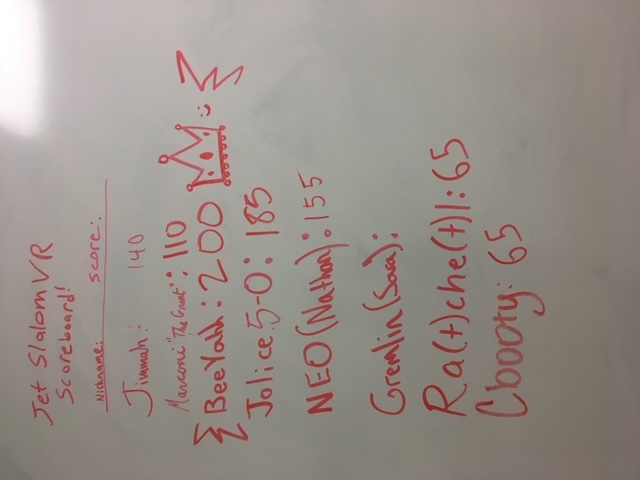 Jet Slalom VR
Scoreboard!
Nickname: Score:
Jimmah: 140
Marconi "The Great": 110
BeeYahh: 200
Jolice 5-0: 185
NEO (Nathan): 155
Gremlin (Sara):
Ra(t)che(t)l: 65
Cbooty: 65